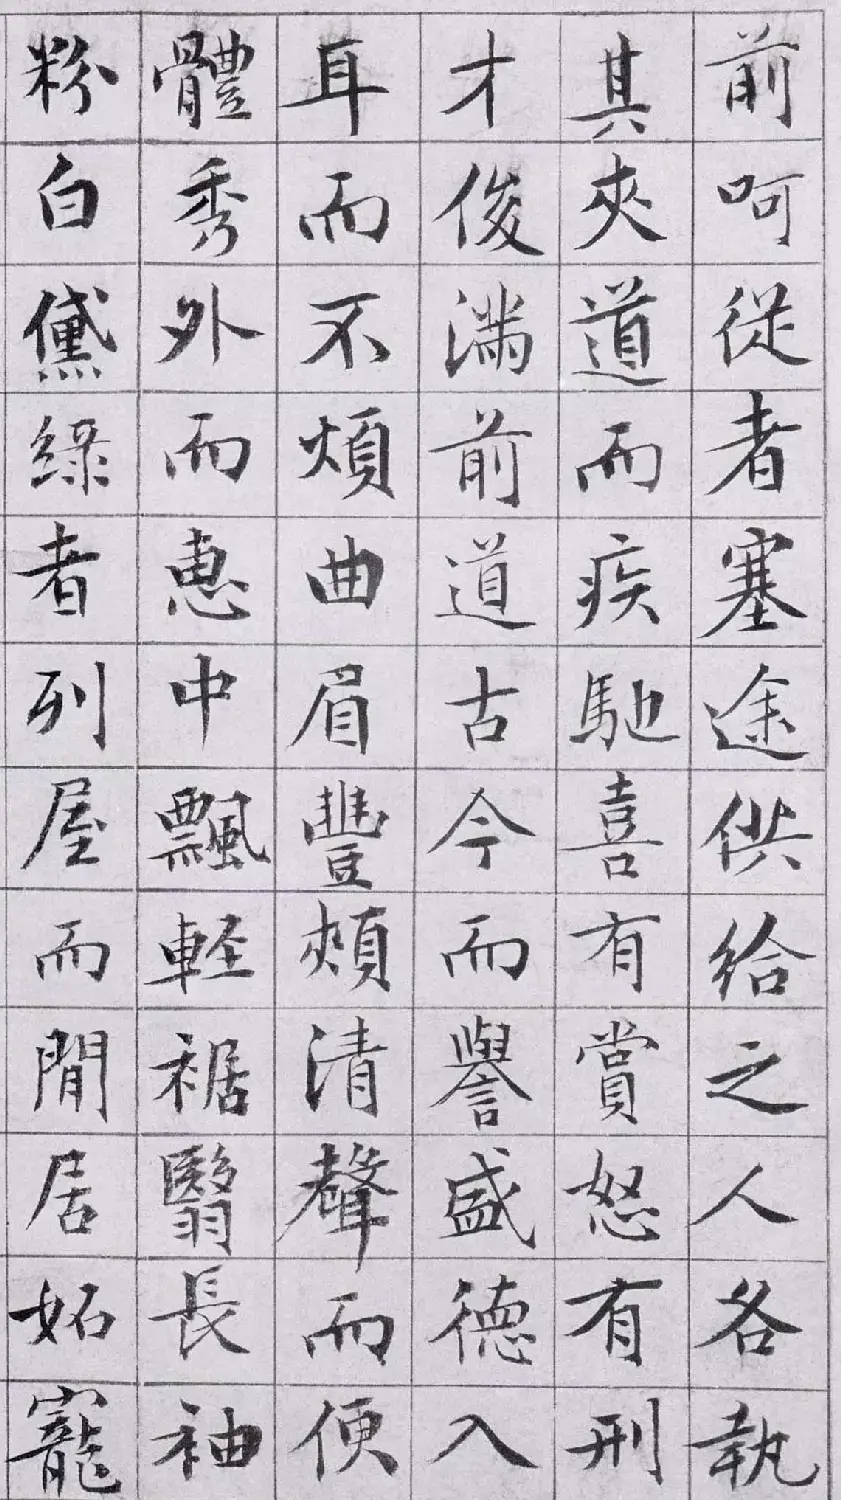 前呵從者塞途供給之人各執
其夾道而疾馳喜有賞怒有刑
才俊滿前道古今而譽盛德入
耳而不煩曲眉豐頰清聲而便
體秀外而惠中飄輕裾翳長袖
粉白黛綠者列屋而閒居妬寵